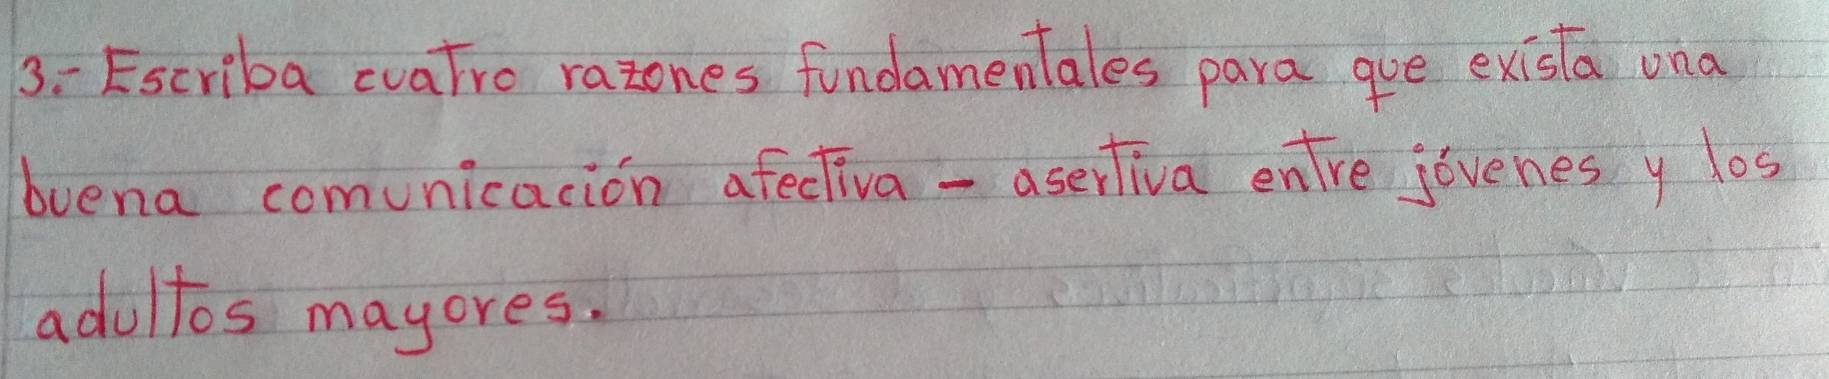 3.- Escriba cuatro razones fundamentales para que exista una
buena comunicación afectiva - asertiva entre jóvenes y los
adultos mayores.